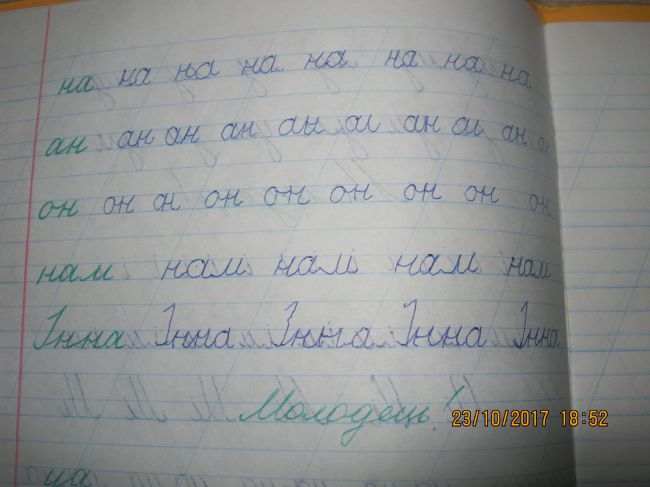 на на на на на на на на
ан ан ан ан ан аі ан аі ан ан
он он он он он он он он он
нам нам нам нам нам
Інна Інна Інна Інна Інна
Молодець!
23/10/2017 18:52